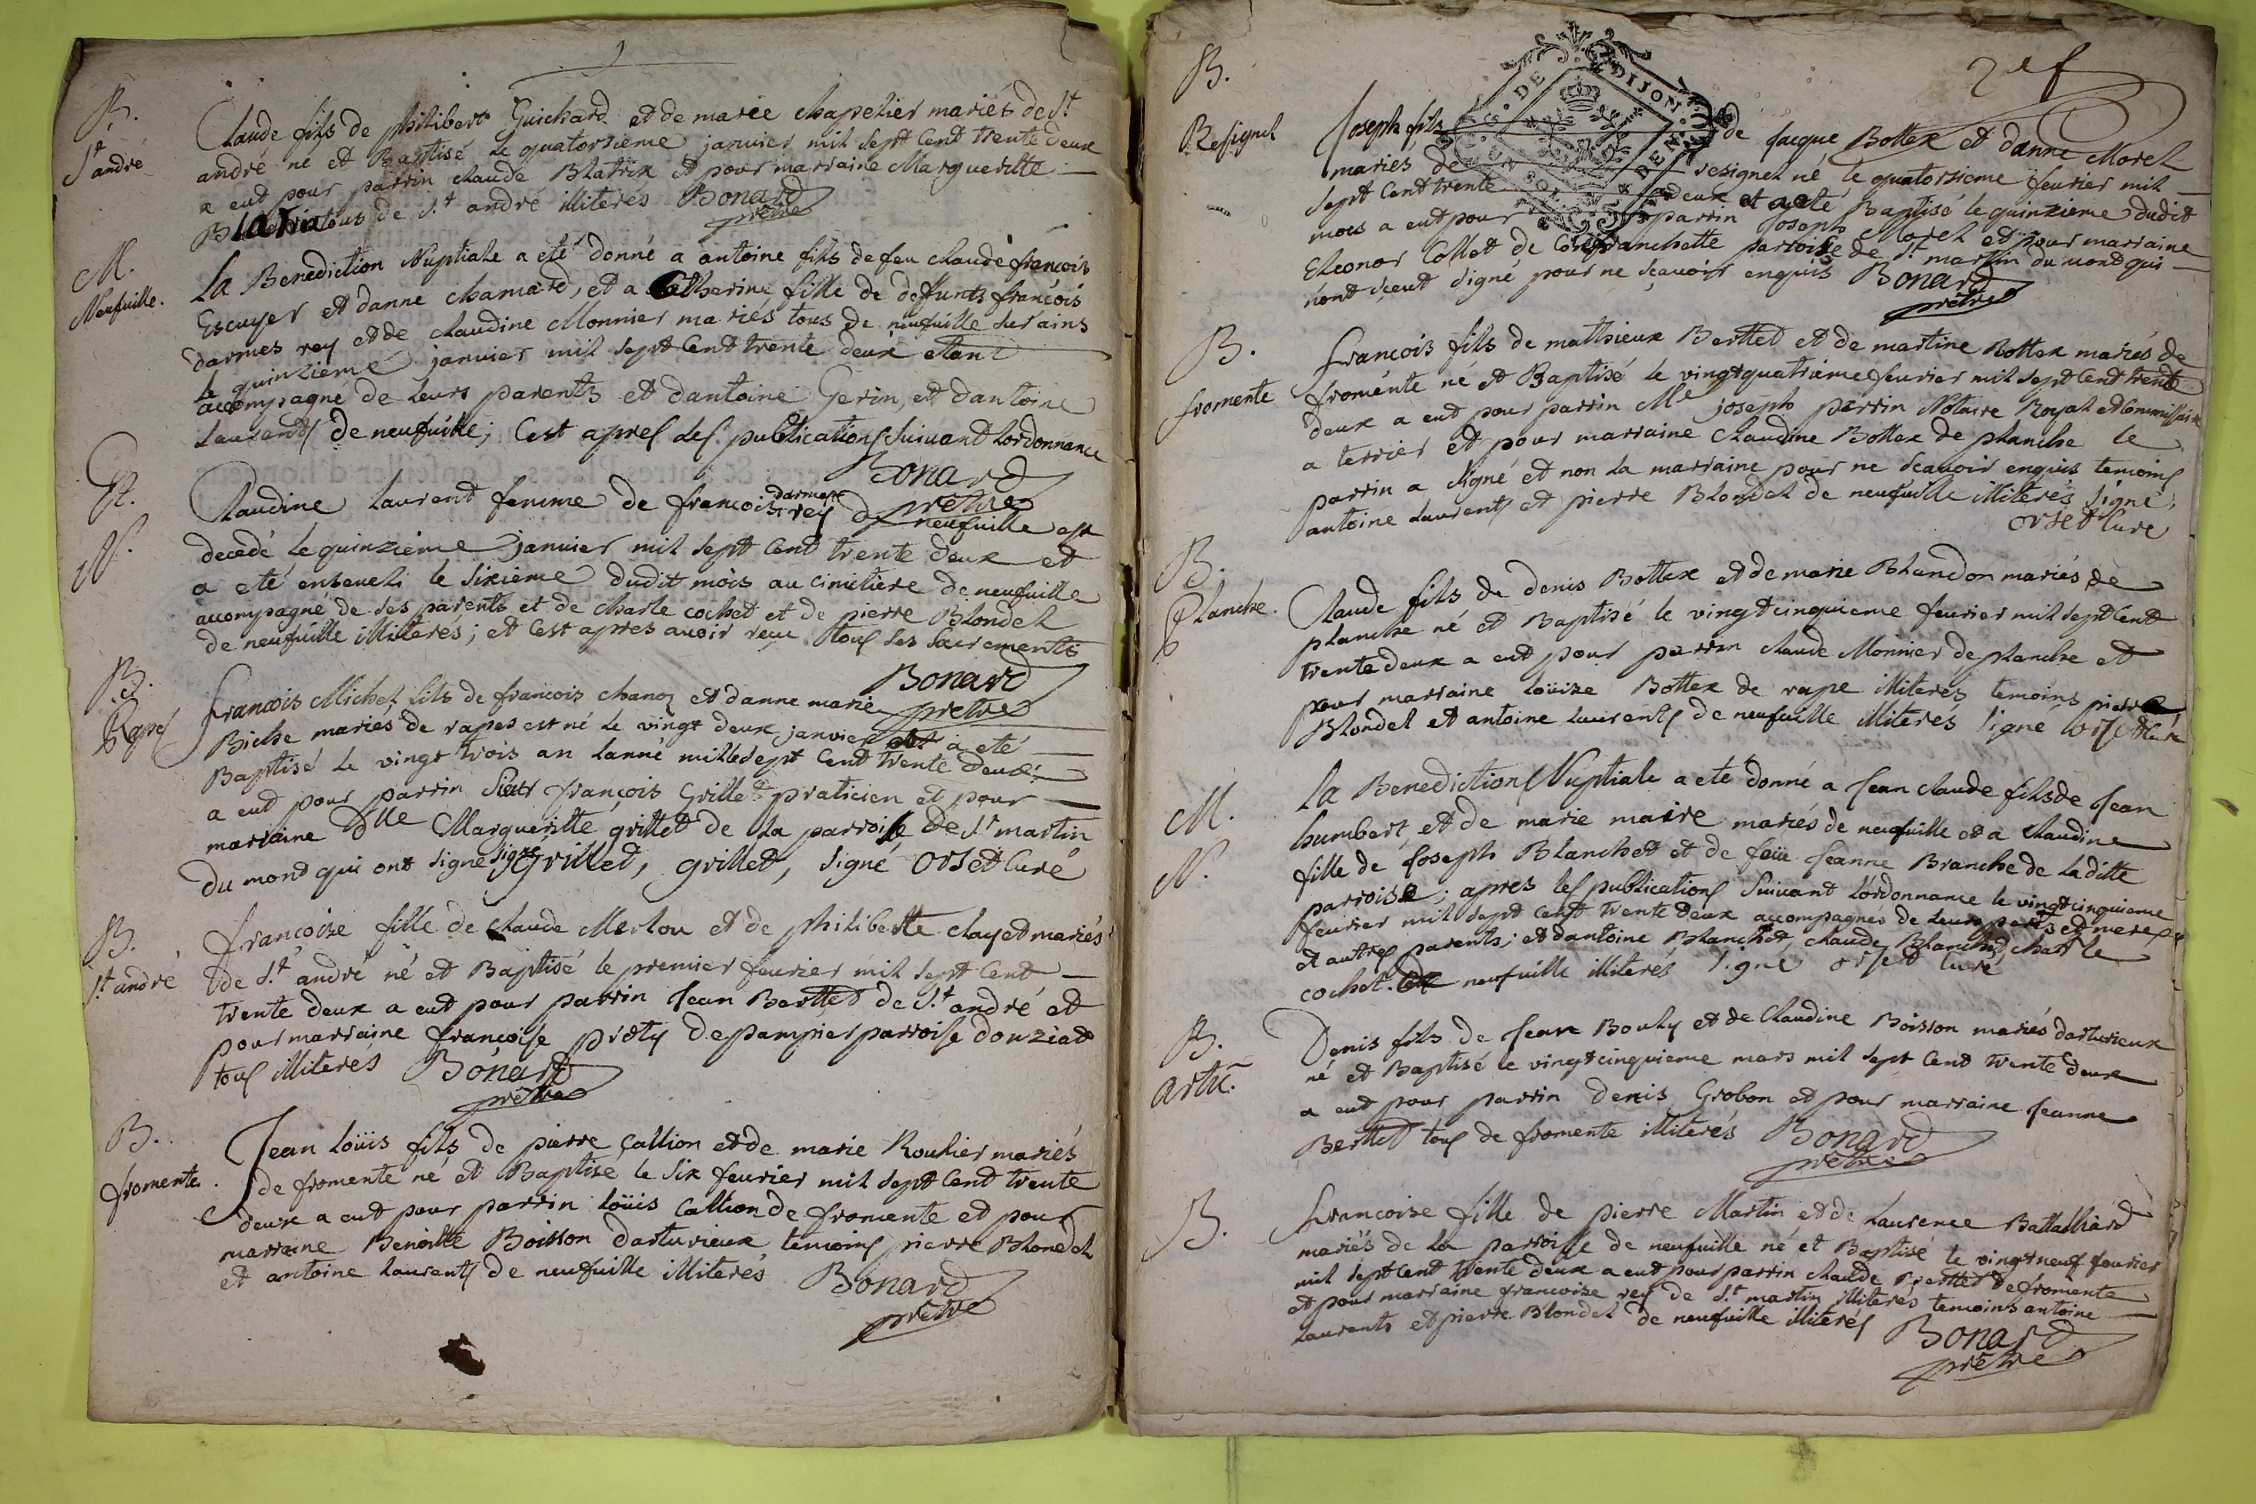 B.
St
andré
Claude fils de philibert Guichard et de marie chapelier mariés de St
andré né et Baptisé le quatorsieme janvier mil sept Cent trente deux
a eut pour parrin claude Blatrix et pour marraine Marguerite
tous de St andré illiterés Bonard
prêtre
M.
Neufuille.
La Benediction Nuptiale a eté donné a antoine fils de feu claude françois
Escuyer et danne chamard, et a Catherine fille de deffunts françois
darmes rey et de claudine Monnier mariés tous de neufuille sur ains
le quinzieme janvier mil sept Cent trente deux etant
accompagné de leurs parents et dantoine Gerin, et dantoine
Laurents de neufuille; C'est apres les publications suivant lordonnance
Bonard
prêtre
Et.
N.
Claudine laurent femme de francois darmes rey de neufuille est
decedé le quinzième janvier mil sept Cent trente deux et
a eté enseveli le sixieme dudit mois au cimetiere de neufuille
accompagné de ses parents et de charle cochet et de pierre Blondel
de neufuille illiterés; et C'est apres avoir reçu tous les sacrements
Bonard
prêtre
B.
Rapes
francois Michel fils de francois chanq et danne marie
Biche mariés de rapes est né le vingt deux janvier et a eté
Baptisé le vingt trois an lanné mil sept Cent trente deux
a eut pour parrin Sieur françois Grillet praticien et pour
marraine Dlle Marguerite grillet de la parroise de St martin
du mont qui ont signé signé Grillet, grillet, signé orset Curé
B.
St andré
francoise fille de claude Merlou et de philiberte clayet mariés
de St andré né et Baptisé le premier fevrier mil sept Cent
trente deux a eut pour parrin Jean Berttet de St andré et
pour marraine françoise proty de pampier parroisse douziat
tous illiterés Bonard
prêtre
B.
fromente.
Jean loüis fils de pierre Callion et de marie Roulier mariés
de fromente né et Baptise le six fevrier mil sept Cent trente
deux a eut pour parrin loüis Callion de fromente et pour
marraine Benoitte Boisson darturieux temoins pierre Blondel
et antoine laurents de neufuille illiterés Bonard
prêtre
2e f
DE DIJON
B.
Resignel
Joseph fils de Jacque Bottex et danne Morel
mariés de resignel né le quatorsieme fevrier mil
sept Cent trente deux et a eté Baptisé le quinzieme dudit
mois a eut pour parrin Joseph Morel et pour marraine
Eleonor Collet de Confranchette parroise de St martin du mont qui
nont sceut signé pour ne sçavoir enquis Bonard
prêtre
B.
fromente
françois fils de mathieux Berttet et de martine Bottex mariés de
fromente né et Baptisé le vingt quatrieme fevrier mil sept Cent trente
deux a eut pour parrin Me joseph perrin Notaire Royal et Commissaire
a terrier et pour marraine claudine Bottex de planche le
parrin a signé et non la marraine pour ne scavoir enquis temoins
antoine laurents et pierre Blondel de neufuille illiterés signé,
orset Cure
B.
Planche.
Claude fils de denis Bottex et de marie Blandon mariés de
planche né et Baptisé le vingt cinquieme fevrier mil sept Cent
trente deux a eut pour parrin claude Monnier de planche et
pour marraine loüize Bottex de rape illiterés temoins pierre
Blondel et antoine laurents de neufuille illiterés signé orset Curé
M.
N.
La Benediction Nuptiale a eté donné a Jean claude fils de Jean
humbert et de marie maire mariés de neufuille et a claudine
fille de Joseph Blanchet et de feüe Jeanne Branche de laditte
parroise; apres les publications suivant lordonnance le vingt cinquieme
fevrier mil sept Cent trente deux accompagnés de leurs peres et meres
et autres parents; et dantoine Blanchet, claude Blanchet, charle
cochet de neufuille illiterés signé orset Curé
B.
Artu.
Denis fils de Jean Bouly et de Claudine Boisson mariés darturieux
né et Baptisé le vingt cinquieme mars mil sept Cent trente deux
a eut pour parrin denis Grobon et pour marraine Jeanne
Berttet tous de fromente illiterés Bonard
prêtre
B.
francoise fille de pierre Martin et de laurence Battalliard
mariés de la parroisse de neufuille né et Baptisé le vingt neuf fevrier
mil sept Cent trente deux a eut pour parrin claude Berttet de fromente
et pour marraine francoise rey de St martin illiterés temoins antoine
laurents et pierre Blondel de neufuille illiterés Bonard
prêtre